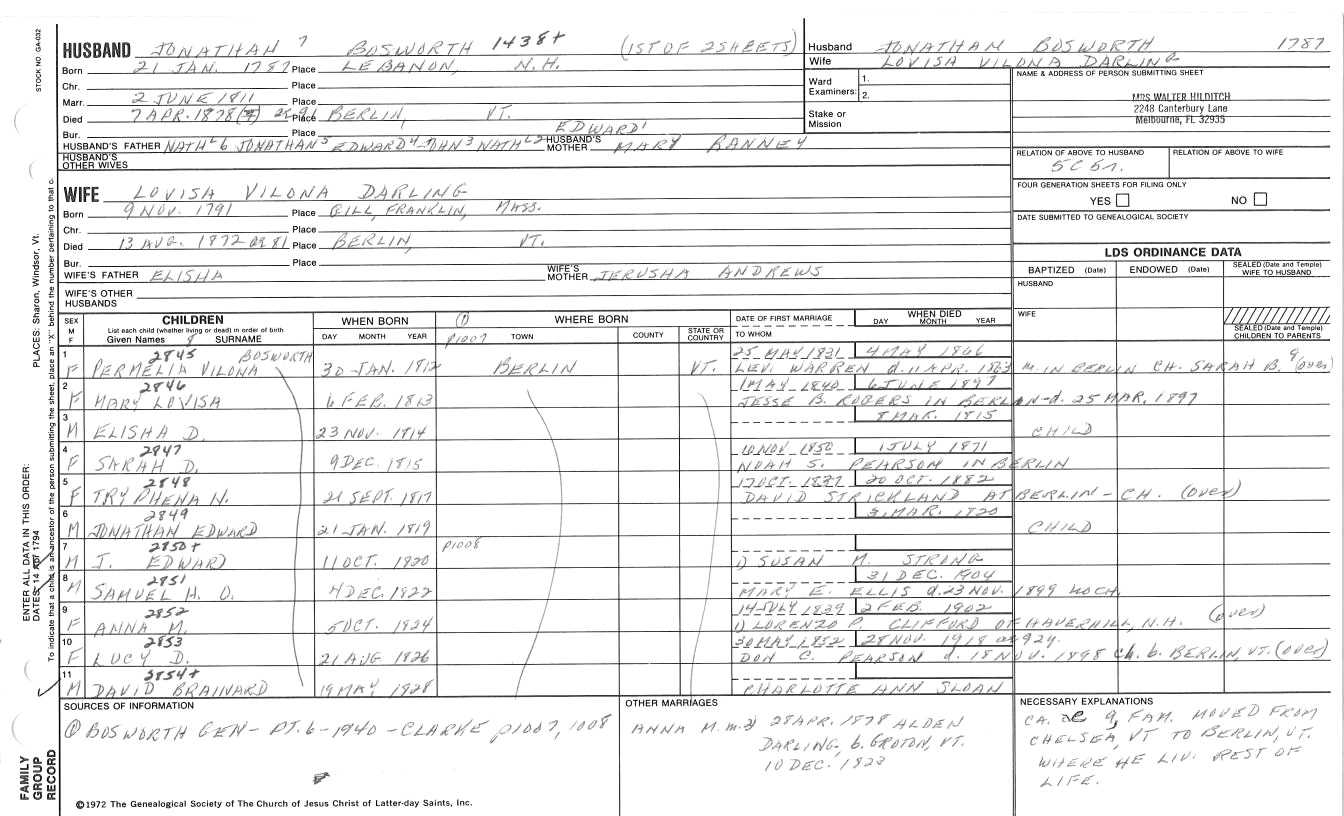 STOCK NO. GA-032
PLACES: Sharon, Windsor, Vt.
ENTER ALL DATA IN THIS ORDER:
DATES: 14 1794
To indicate that a child is an ancestor of the person submitting the sheet, place an "X" behind the number pertaining to that c.
FAMILY GROUP RECORD
HUSBAND JONATHAN 7 BOSWORTH 1438+ (1ST OF 2 SHEETS)
Born 21 JAN. 1787 Place LEBANON, N.H.
Chr. Place
Marr. 2 JUNE 1811 Place
Died 7 APR. 1878 Place BERLIN, VT.
Bur. Place EDWARD 1
HUSBAND'S FATHER NATH L 6 JONATHAN 5 EDWARD 4 - JOHN 3 NATH L 2 HUSBAND'S MOTHER MARY RANNEY
HUSBAND'S OTHER WIVES
Husband JONATHAN BOSWORTH 1787
Wife LOVISA VILONA DARLING
Ward Examiners: 1.
2.
Stake or Mission
NAME & ADDRESS OF PERSON SUBMITTING SHEET
MRS WALTER HILDITCH
2248 Canterbury Lane
Melbourne, FL 32935
RELATION OF ABOVE TO HUSBAND RELATION OF ABOVE TO WIFE
5C
FOUR GENERATION SHEETS FOR FILING ONLY
YES NO
DATE SUBMITTED TO GENEALOGICAL SOCIETY
WIFE LOVISA VILONA DARLING
Born 9 NOV. 1791 Place GILL, FRANKLIN, MASS.
Chr. Place
Died 13 AUG. 1872 ae 81 Place BERLIN, VT.
Bur. Place
WIFE'S FATHER ELISHA WIFE'S MOTHER JERUSHA ANDREWS
WIFE'S OTHER HUSBANDS
LDS ORDINANCE DATA
BAPTIZED (Date) ENDOWED (Date) SEALED (Date and Temple) WIFE TO HUSBAND
HUSBAND
WIFE
SEALED (Date and Temple) CHILDREN TO PARENTS
SEX M F CHILDREN WHEN BORN (1) WHERE BORN DATE OF FIRST MARRIAGE WHEN DIED
List each child (whether living or dead) in order of birth
Given Names 8 SURNAME DAY MONTH YEAR P1007 TOWN COUNTY STATE OR COUNTRY TO WHOM DAY MONTH YEAR
1 2845 BOSWORTH 25 MAY 1831 4 MAY 1866
F PERMELIA VILONA 30 JAN. 1812 BERLIN VT. LEVI WARREN d. 11 APR. 1863 M. IN BERLIN CH. SARAH B. 9 (over)
2 2846 1 MAY 1840 6 JUNE 1897
F MARY LOVISA 6 FEB. 1813 JESSE B. ROGERS IN BERLIN - d. 25 MAR. 1897
3 8 MAR. 1815
M ELISHA D. 23 NOV. 1814 CHILD
4 2847 10 NOV 1850 1 JULY 1871
F SARAH D. 9 DEC. 1815 NOAH S. PEARSON IN BERLIN
5 2848 20 OCT. 1882
F TRYPHENA N. 21 SEPT. 1817 DAVID STRICKLAND AT BERLIN - CH. (over)
6 2849 MAR. 1820
M JONATHAN EDWARD 21 JAN. 1819 CHILD
7 2850+ P1008
M J. EDWARD 11 OCT. 1820 1) SUSAN M. STRONG
8 2851 31 DEC. 1904
M SAMUEL H. O. 4 DEC. 1822 MARY E. ELLIS d. 23 NOV. 1899 NO CH.
9 2852 14 JULY 1839 2 FEB. 1902 (over)
F ANNA M. 5 OCT. 1824 1) LORENZO P. CLIFFORD OF HAVERHILL, N.H.
10 2853 30 MAY 1852 28 NOV. 1918 ae 92
F LUCY D. 21 AUG 1826 DON C. PEARSON d. 18 NOV. 1898 CH. b. BERLIN, VT. (over)
11 2854+
M DAVID BRAINARD 19 MAY 1828 CHARLOTTE ANN SLOAN
SOURCES OF INFORMATION
(1) BOSWORTH GEN - PT. 6 - 1940 - CLARKE p1007, 1008
OTHER MARRIAGES
ANNA M. m. 2) 28 APR. 1878 ALDEN
DARLING, b. GROTON, VT.
10 DEC. 1823
NECESSARY EXPLANATIONS
CA. ae 9, FAM. MOVED FROM
CHELSEA, VT TO BERLIN, VT.
WHERE HE LIV. REST OF
LIFE.
©1972 The Genealogical Society of The Church of Jesus Christ of Latter-day Saints, Inc.